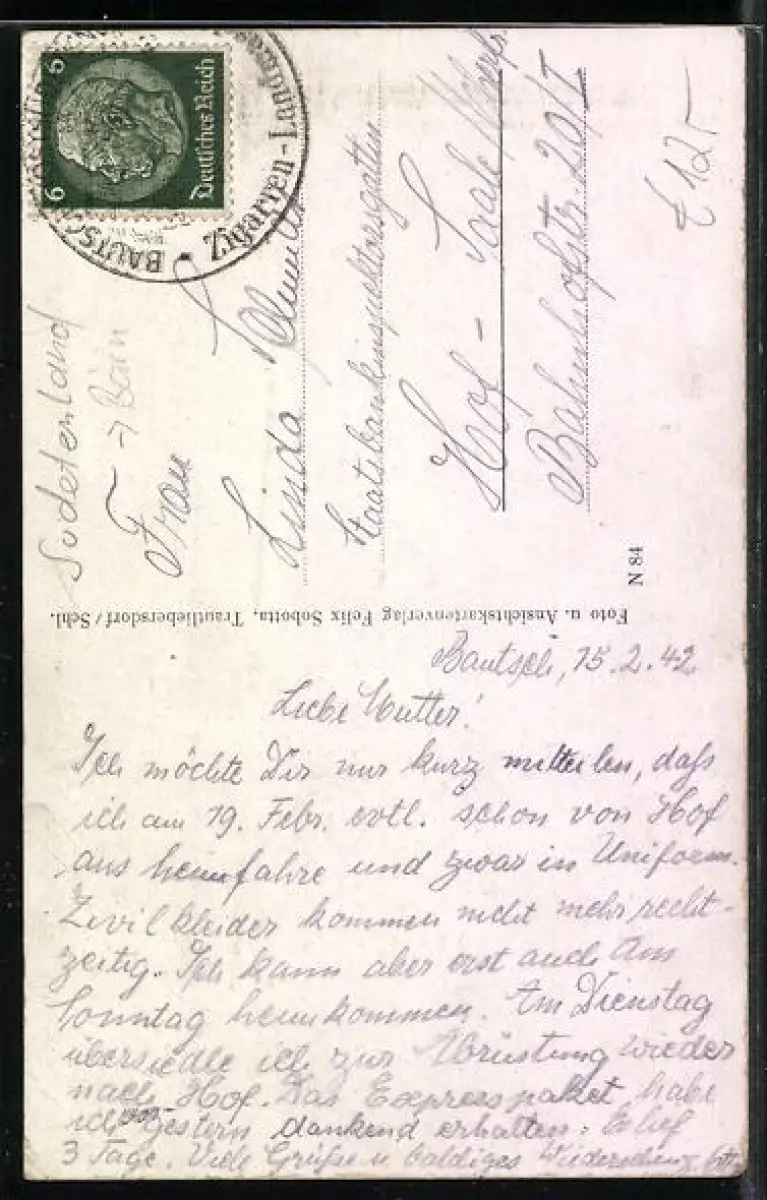 6 6
Deutsches Reich
BAUTSCH
Zigarren-Landmann
Sudetenland
→ Bärn
Frau
Linda
Staatsbankinspektorsgattin
Hof - Saale
Bahnhofstr. 20/I
€ 12,-
N 84
Foto u. Ansichtskartenverlag Felix Sobotta, Trautliebersdorf/Schl.
Bautsch, 15.2.42
Liebe Mutter!
Ich möchte Dir nur kurz mitteilen, daß
ich am 19. Febr. evtl. schon von Hof
aus heimfahre und zwar in Uniform.
Zivilkleider kommen nicht mehr recht-
zeitig. Ich kann aber erst auch am
Sonntag heimkommen. Am Dienstag
übersiedle ich zur Abrüstung wieder
nach Hof. Das Expresspaket habe
ich gestern dankend erhalten: lief
3 Tage. Viele Grüße u baldiges Wiedersehen